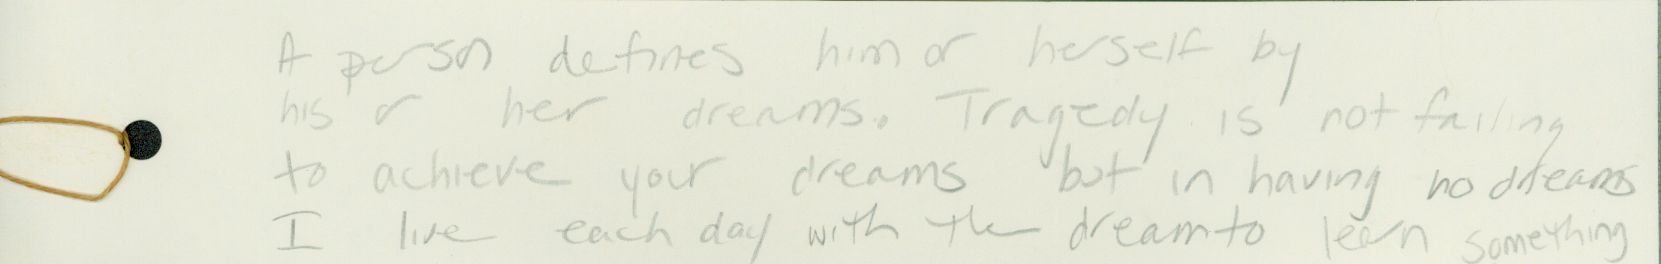 A person defines him or herself by
his or her dreams. Tragedy is not failing
to achieve your dreams but in having no dreams
I live each day with the dream to learn something